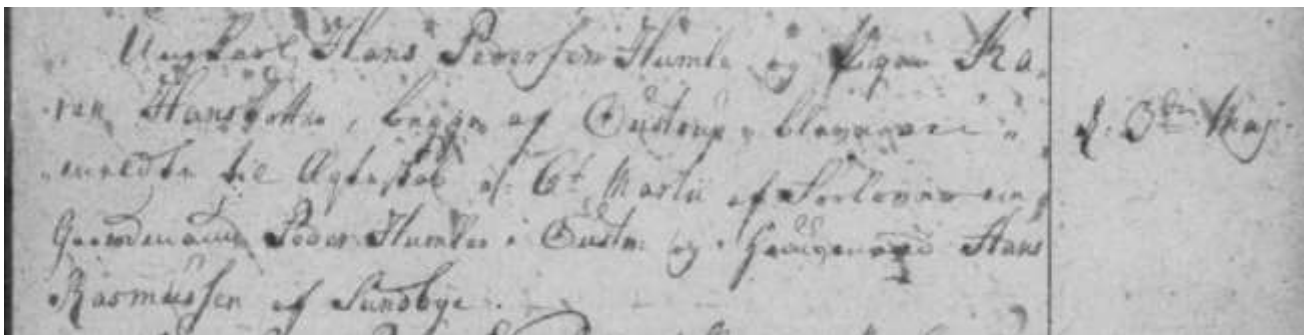 Ungkarl Hans Pedersen Humble og Pigen Ka-
ren Hansdotter, begge af Oustrup, bleve an-
meldte til Ægteskab d. 6t Martii af Forloverne
Gaardmand Peder Humble i Oustr: og Hans
Rasmussen af Sundbye.
d. 3die Maj.